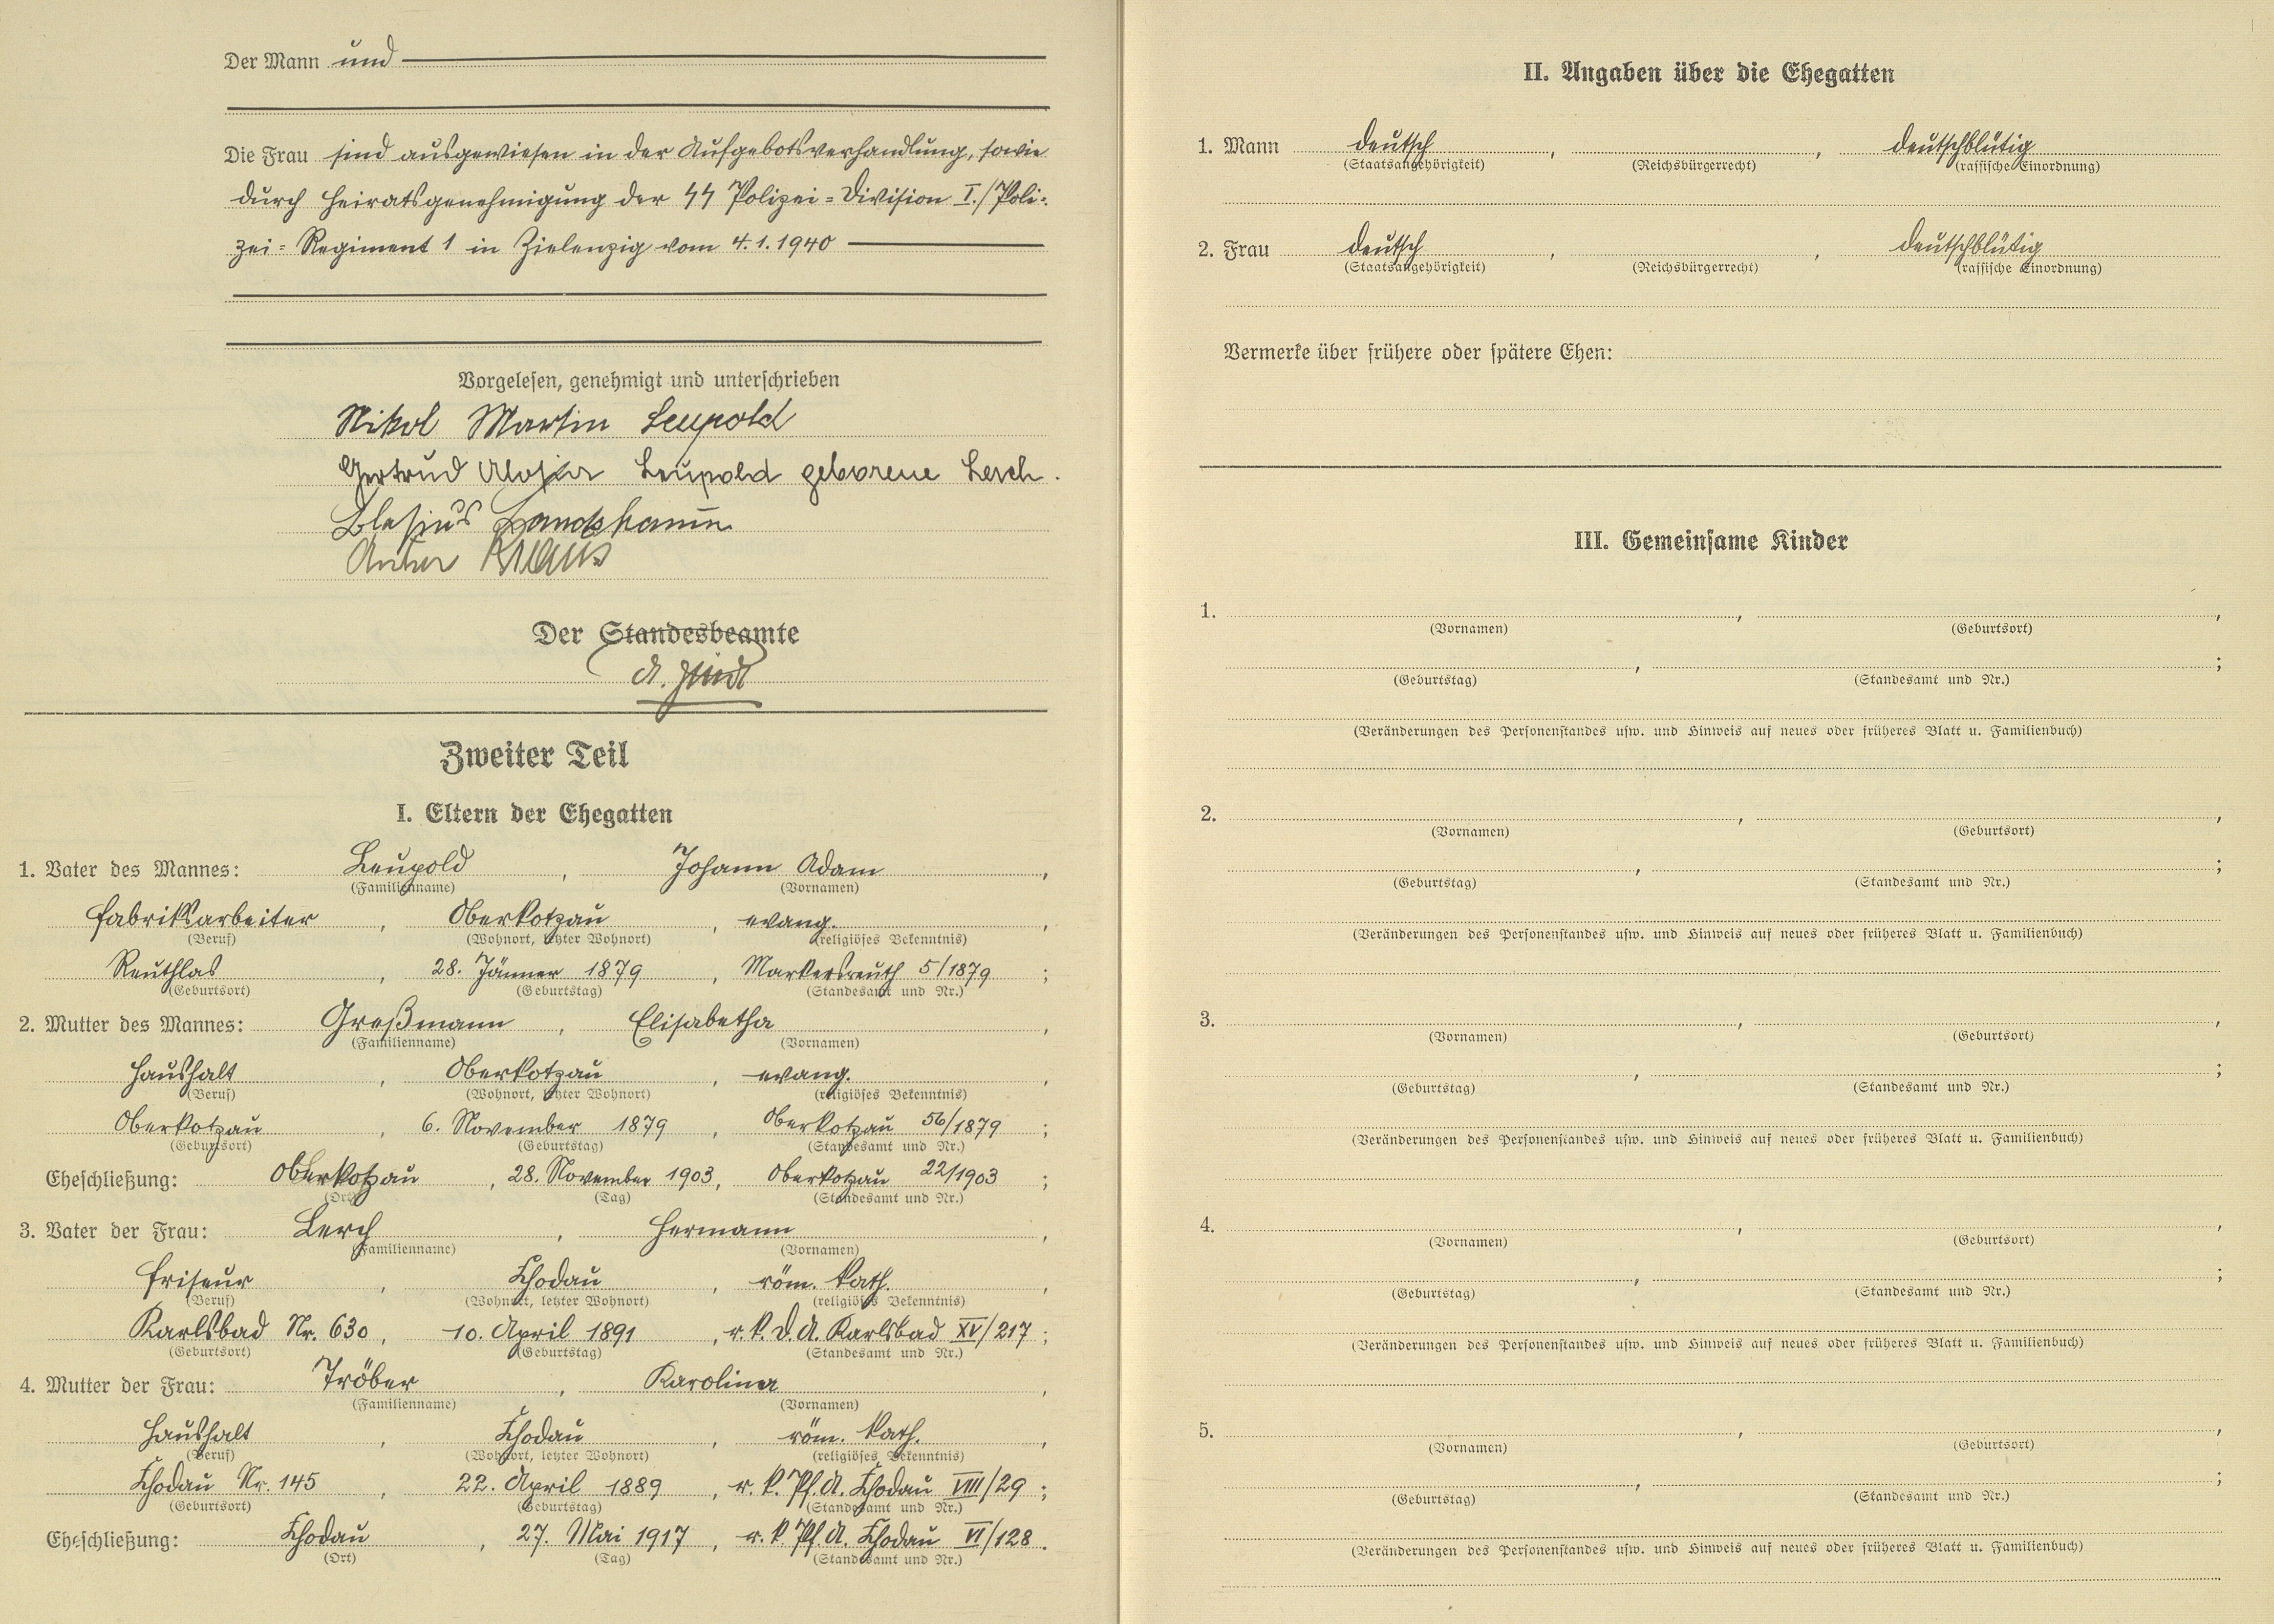 Der Mann und
Die Frau sind ausgewiesen in der Aufgebotsverhandlung, sowie
durch Heiratsgenehmigung der SS Polizei=Division I./Poli=
zei=Regiment 1 in Zielenzig vom 4.1.1940
Vorgelesen, genehmigt und unterschrieben
Nikol Martin Leupold
Gertrud Aloisia Leupold geborene Lerch.
Blasius
Anton Kraus
Der Standesbeamte
A.
Zweiter Teil
I. Eltern der Ehegatten
1. Vater des Mannes: Leupold, Johann Adam,
(Familienname) (Vornamen)
Fabriksarbeiter, Oberkotzau, evang.,
(Beruf) (Wohnort, letzter Wohnort) (religiöses Bekenntnis)
Reuthlas, 28. Jänner 1879, Markersreuth 5/1879;
(Geburtsort) (Geburtstag) (Standesamt und Nr.)
2. Mutter des Mannes: Greßmann, Elisabetha,
(Familienname) (Vornamen)
Haushalt, Oberkotzau, evang.,
(Beruf) (Wohnort, letzter Wohnort) (religiöses Bekenntnis)
Oberkotzau, 6. November 1879, Oberkotzau 56/1879;
(Geburtsort) (Geburtstag) (Standesamt und Nr.)
Eheschließung: Oberkotzau, 28. November 1903, Oberkotzau 22/1903;
(Ort) (Tag) (Standesamt und Nr.)
3. Vater der Frau: Lerch, Hermann,
(Familienname) (Vornamen)
Friseur, Chodau, röm. kath.,
(Beruf) (Wohnort, letzter Wohnort) (religiöses Bekenntnis)
Karlsbad Nr. 630, 10. April 1891, r.k.D.A. Karlsbad XV/217;
(Geburtsort) (Geburtstag) (Standesamt und Nr.)
4. Mutter der Frau: Tröber, Karolina,
(Familienname) (Vornamen)
Haushalt, Chodau, röm. kath.,
(Beruf) (Wohnort, letzter Wohnort) (religiöses Bekenntnis)
Chodau Nr. 145, 22. April 1889, r.k.Pf.A. Chodau VIII/29;
(Geburtsort) (Geburtstag) (Standesamt und Nr.)
Eheschließung: Chodau, 27. Mai 1917, r.k Pf.A. Chodau VI/128.
(Ort) (Tag) (Standesamt und Nr.)
II. Angaben über die Ehegatten
1. Mann deutsch, , deutschblütig
(Staatsangehörigkeit) (Reichsbürgerrecht) (rassische Einordnung)
2. Frau deutsch, , deutschblütig
(Staatsangehörigkeit) (Reichsbürgerrecht) (rassische Einordnung)
Vermerke über frühere oder spätere Ehen:
III. Gemeinsame Kinder
1. , ,
(Vornamen) (Geburtsort)
, ;
(Geburtstag) (Standesamt und Nr.)
(Veränderungen des Personenstandes usw. und Hinweis auf neues oder früheres Blatt u. Familienbuch)
2. , ,
(Vornamen) (Geburtsort)
, ;
(Geburtstag) (Standesamt und Nr.)
(Veränderungen des Personenstandes usw. und Hinweis auf neues oder früheres Blatt u. Familienbuch)
3. , ,
(Vornamen) (Geburtsort)
, ;
(Geburtstag) (Standesamt und Nr.)
(Veränderungen des Personenstandes usw. und Hinweis auf neues oder früheres Blatt u. Familienbuch)
4. , ,
(Vornamen) (Geburtsort)
, ;
(Geburtstag) (Standesamt und Nr.)
(Veränderungen des Personenstandes usw. und Hinweis auf neues oder früheres Blatt u. Familienbuch)
5. , ,
(Vornamen) (Geburtsort)
, ;
(Geburtstag) (Standesamt und Nr.)
(Veränderungen des Personenstandes usw. und Hinweis auf neues oder früheres Blatt u. Familienbuch)